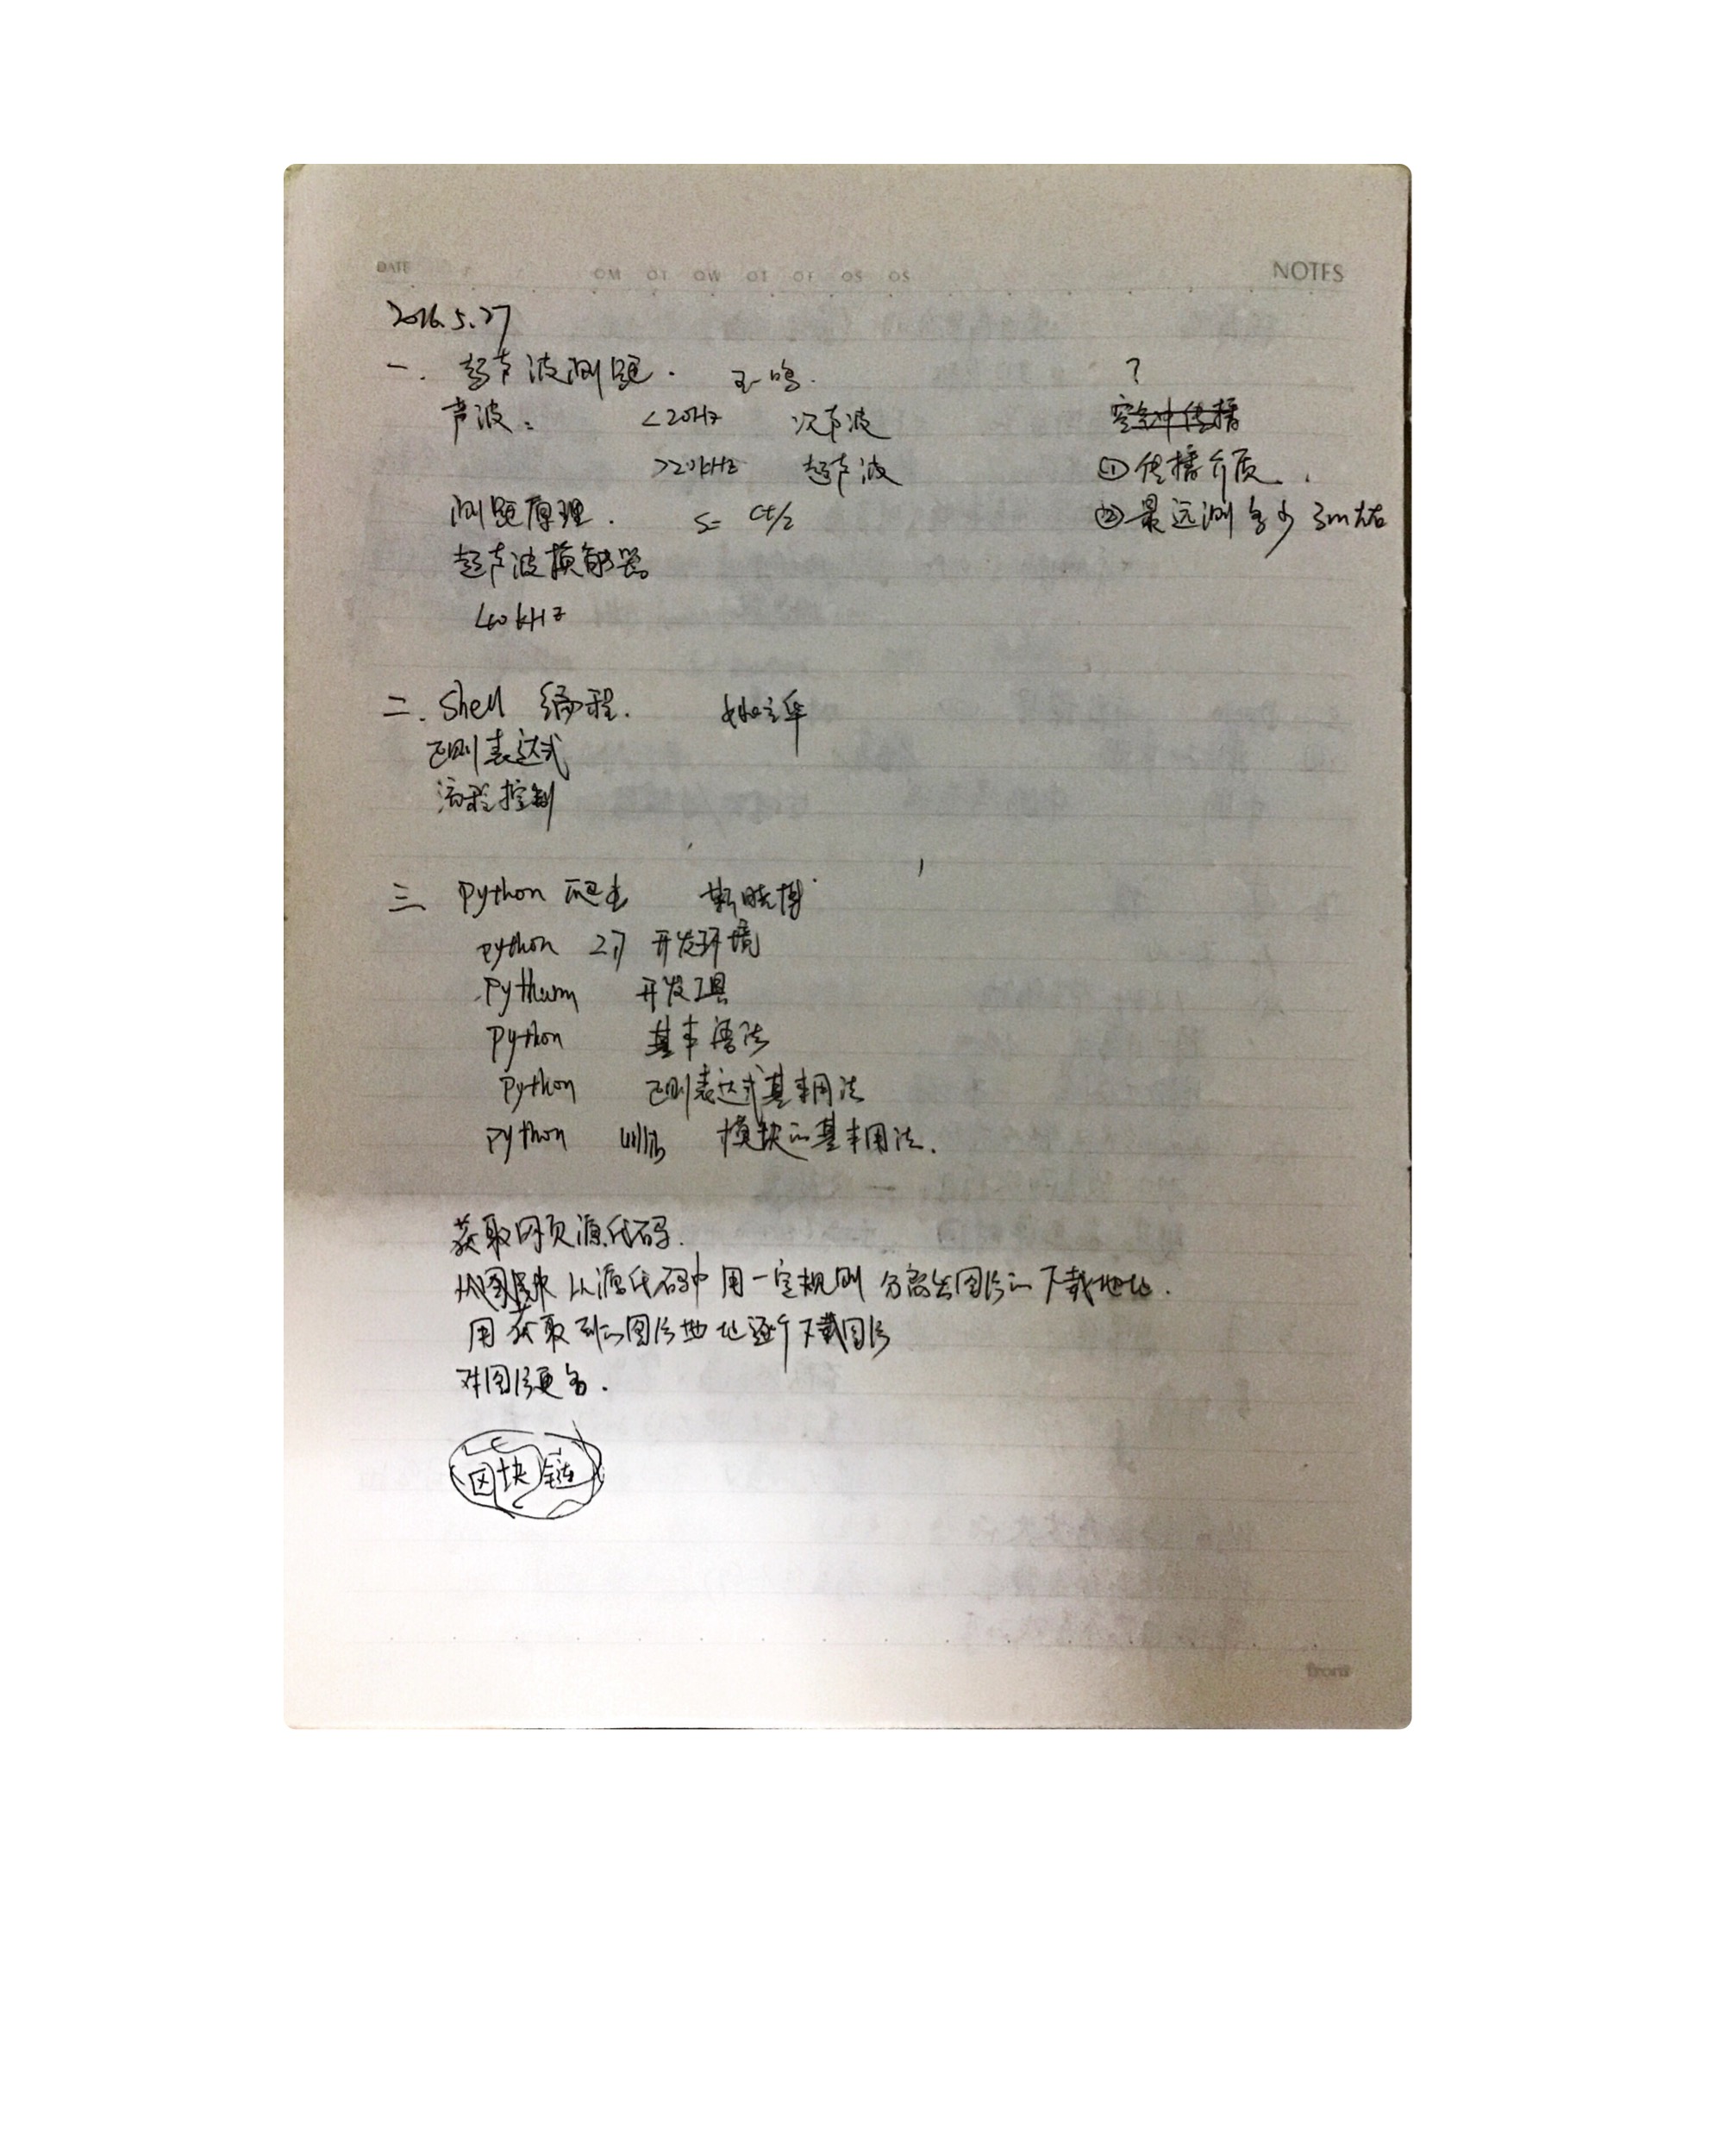 DATE
NOTES
2016.5.27
一. 超声波测距. 王一鸣. ?
声波: <20Hz 次声波
>20kHz 超声波 ①传播介质.
测距原理. S= ct/2 ②最远测多少 3m左右
超声波换能器
40kHz
二. Shell 编程.
正则表达式
流程控制
三 Python 爬虫 靳晓博
python 2.7 开发环境
Pycharm 开发工具
Python 基本语法
Python 正则表达式基本用法
python urllib 模块的基本用法.
获取网页源代码.
从源代码中用一定规则 分离出图片的下载地址.
用获取到的图片地址逐个下载图片
对图片更名.
区块链
front